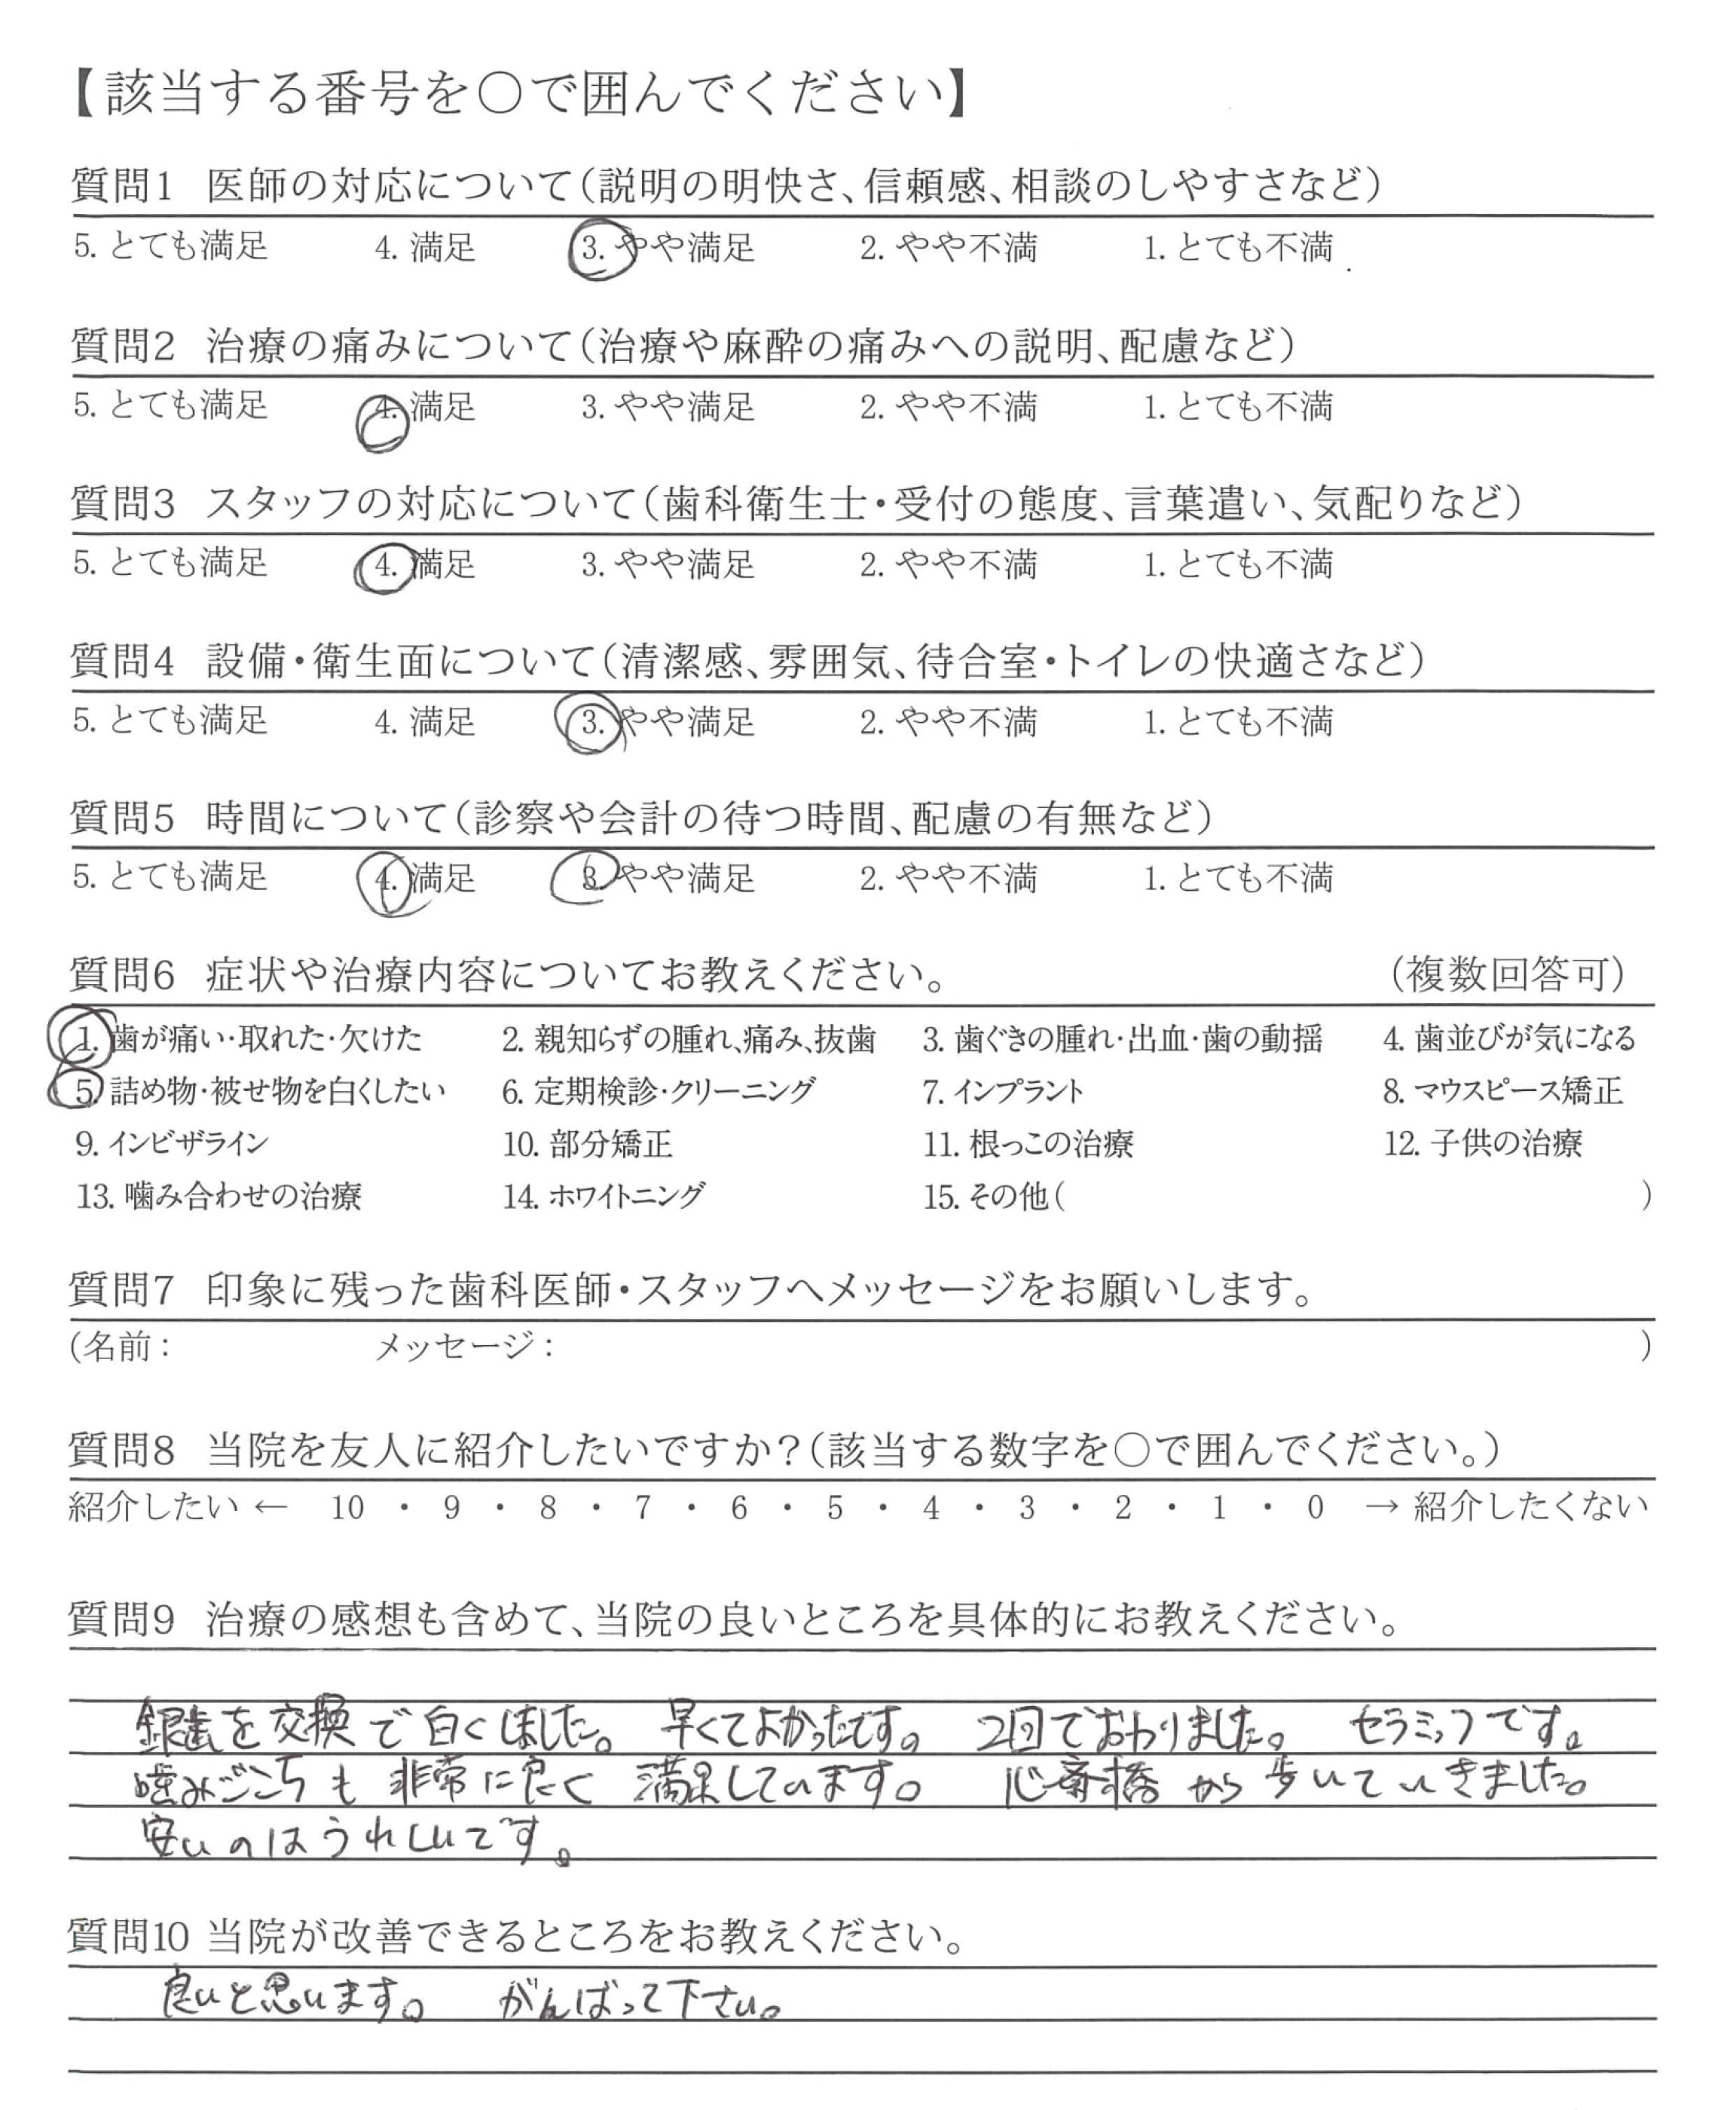 【該当する番号を○で囲んでください】
質問1 医師の対応について(説明の明快さ、信頼感、相談のしやすさなど)
5. とても満足 4. 満足 3. やや満足 2. やや不満 1. とても不満
質問2 治療の痛みについて(治療や麻酔の痛みへの説明、配慮など)
5. とても満足 4. 満足 3. やや満足 2. やや不満 1. とても不満
質問3 スタッフの対応について(歯科衛生士・受付の態度、言葉遣い、気配りなど)
5. とても満足 4. 満足 3. やや満足 2. やや不満 1. とても不満
質問4 設備・衛生面について(清潔感、雰囲気、待合室・トイレの快適さなど)
5. とても満足 4. 満足 3. やや満足 2. やや不満 1. とても不満
質問5 時間について(診察や会計の待つ時間、配慮の有無など)
5. とても満足 4. 満足 3. やや満足 2. やや不満 1. とても不満
質問6 症状や治療内容についてお教えください。 (複数回答可)
1. 歯が痛い・取れた・欠けた 2. 親知らずの腫れ、痛み、抜歯 3. 歯ぐきの腫れ・出血・歯の動揺 4. 歯並びが気になる
5. 詰め物・被せ物を白くしたい 6. 定期検診・クリーニング 7. インプラント 8. マウスピース矯正
9. インビザライン 10. 部分矯正 11. 根っこの治療 12. 子供の治療
13. 噛み合わせの治療 14. ホワイトニング 15. その他( )
質問7 印象に残った歯科医師・スタッフへメッセージをお願いします。
(名前: メッセージ: )
質問8 当院を友人に紹介したいですか?(該当する数字を○で囲んでください。)
紹介したい ← 10 ・ 9 ・ 8 ・ 7 ・ 6 ・ 5 ・ 4 ・ 3 ・ 2 ・ 1 ・ 0 → 紹介したくない
質問9 治療の感想も含めて、当院の良いところを具体的にお教えください。
銀歯を交換で白くしました。 早くてよかったです。 2回でおわりました。 セラミックです。
噛みごこちも非常に良く 満足しています。 心斎橋から歩いていきました。
安いのはうれしいです。
質問10 当院が改善できるところをお教えください。
良いと思います。 がんばって下さい。